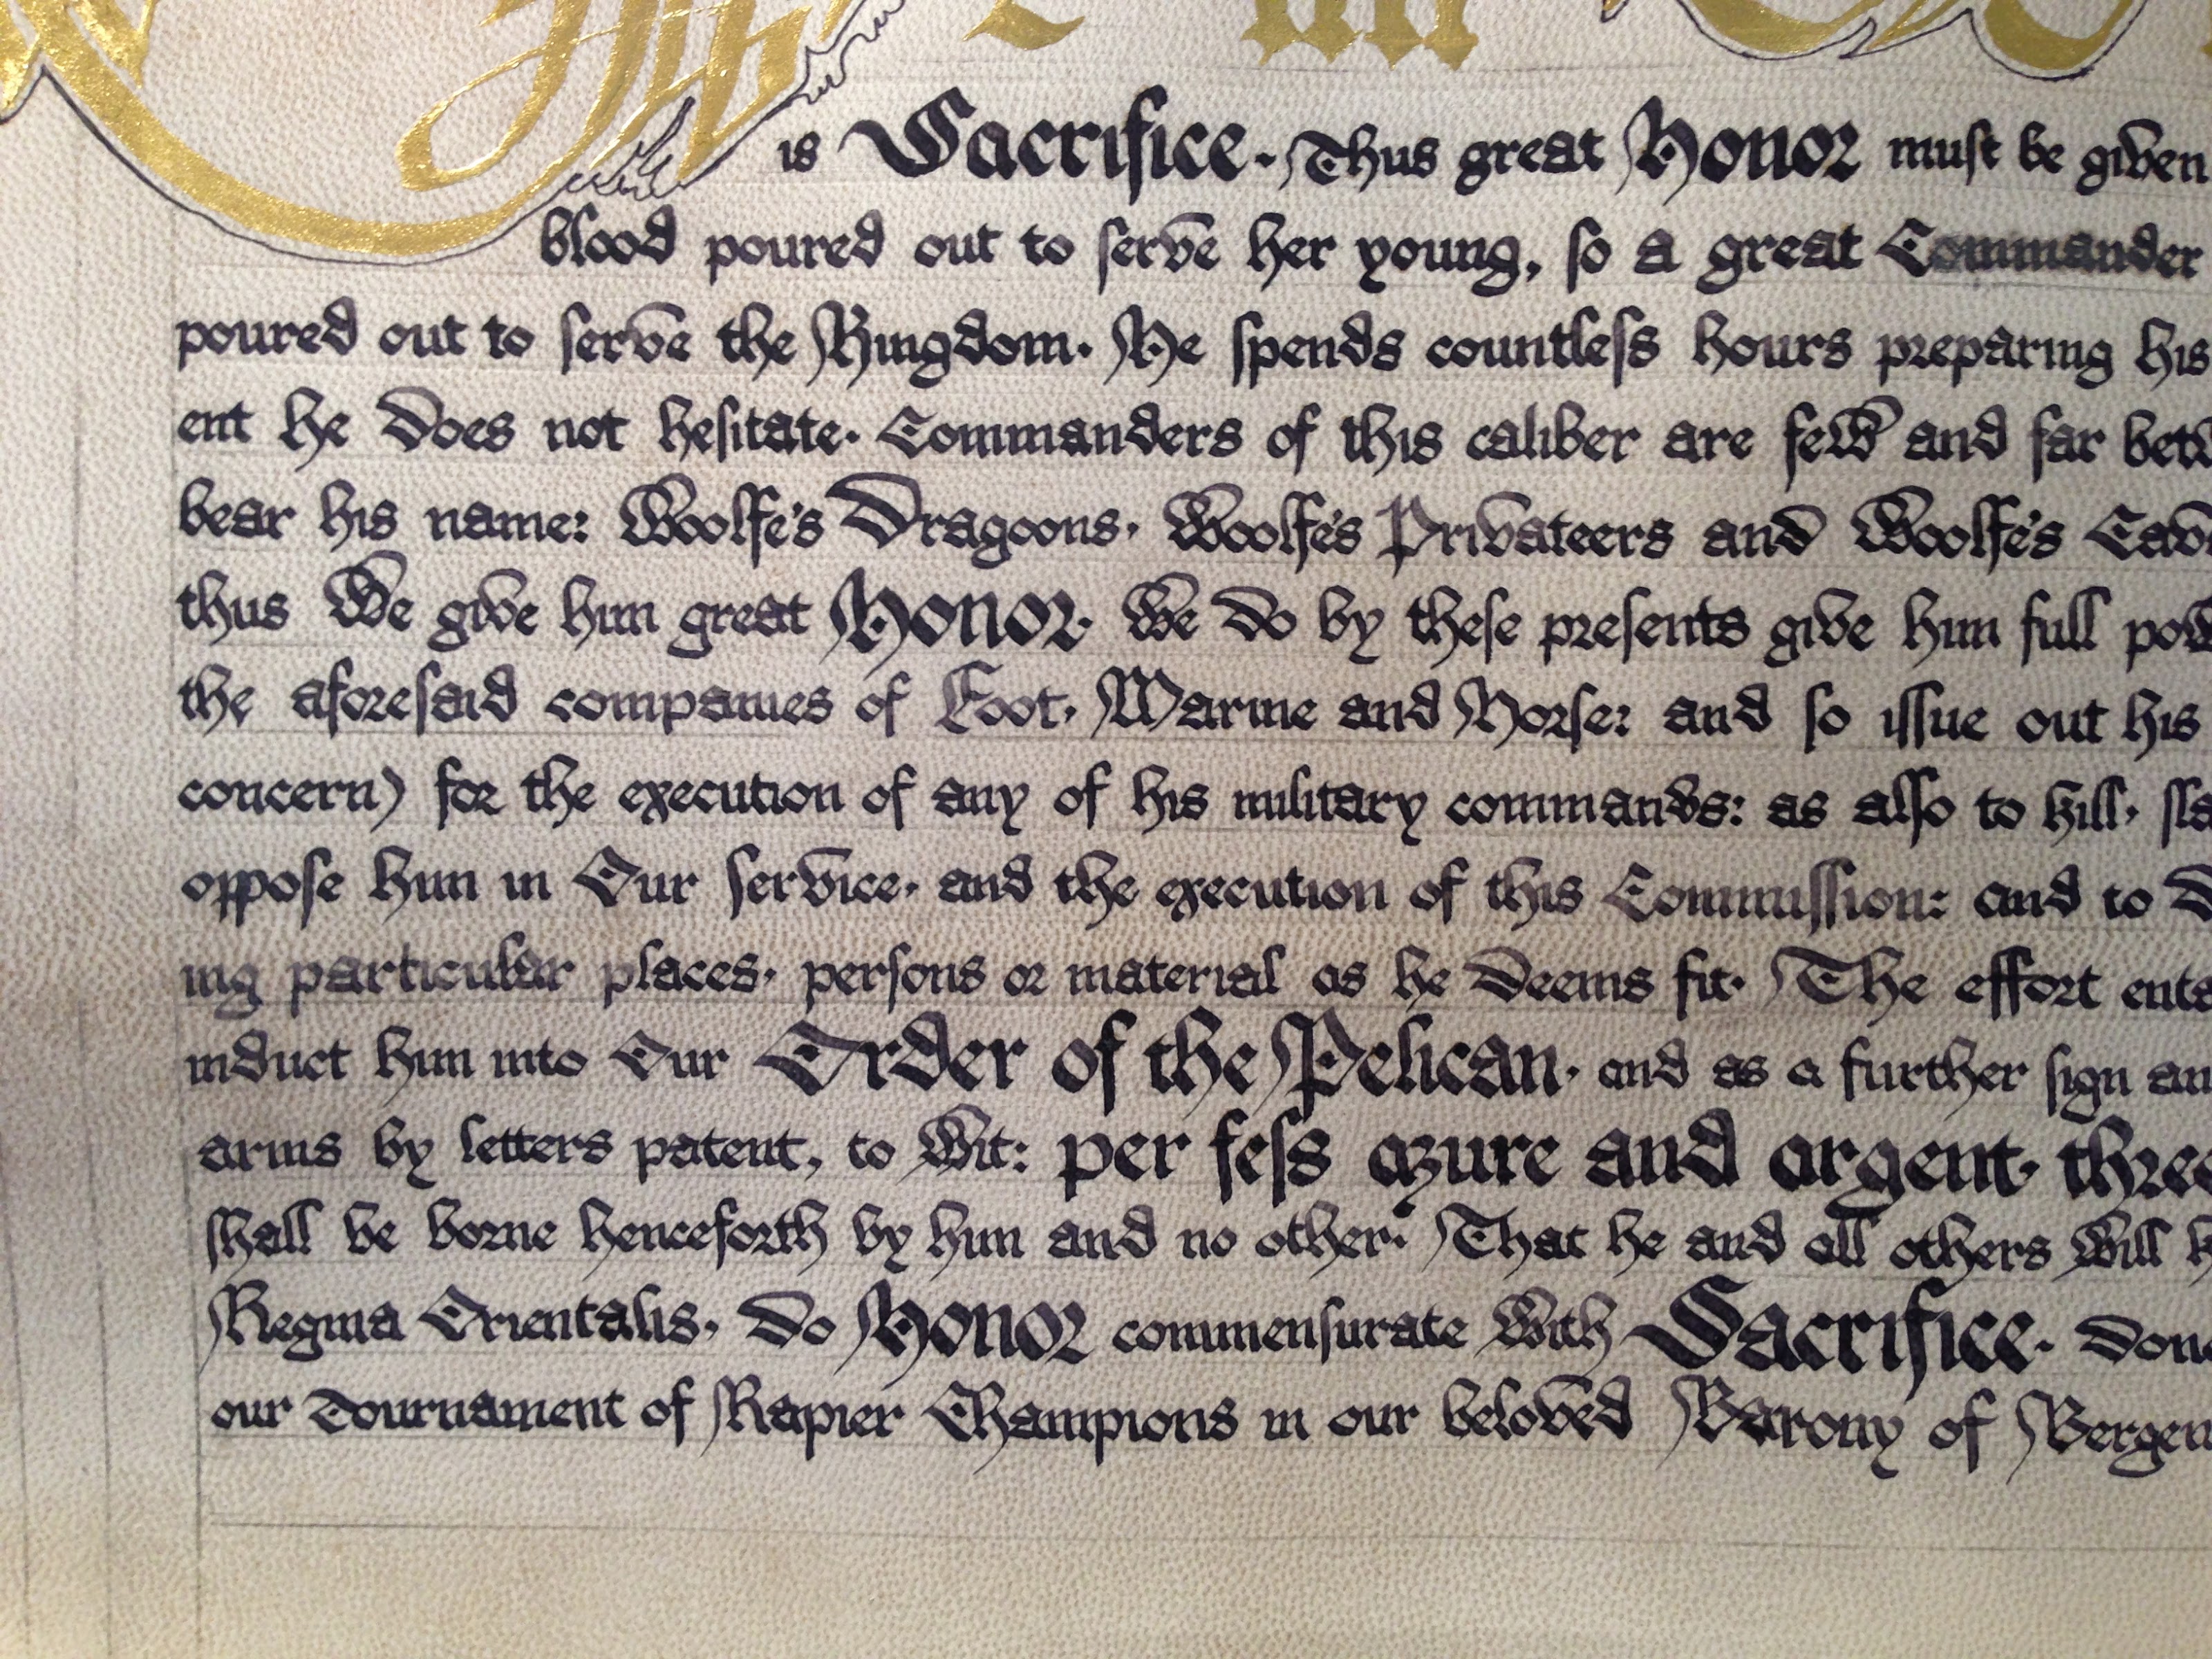 is Sacrifice. Thus great Honor must be given
blood poured out to serve her young, so a great Commander
poured out to serve the Kingdom. He spends countless hours preparing his
ent he does not hesitate. Commanders of this caliber are few and far betw
bear his name: Woolfe's Dragoons, Woolfe's Privateers and Woolfe's Cav
thus We give him great Honor. We do by these presents give him full pow
the aforesaid companies of Foot, Marine and Horse: and so issue out his
concern) for the execution of any of his military commands: as also to kill, sla
oppose him in Our service, and the execution of this Commission: and to d
ing particular places, persons or material as he deems fit. The effort ente
induct him into Our Order of the Pelican, and as a further sign an
arms by letters patent, to wit: per fess azure and argent, three
shall be borne henceforth by him and no other. That he and all others will k
Regina Orientalis, do Honor commensurate with Sacrifice. Done
our Tournament of Rapier Champions in our beloved Barony of Bergen